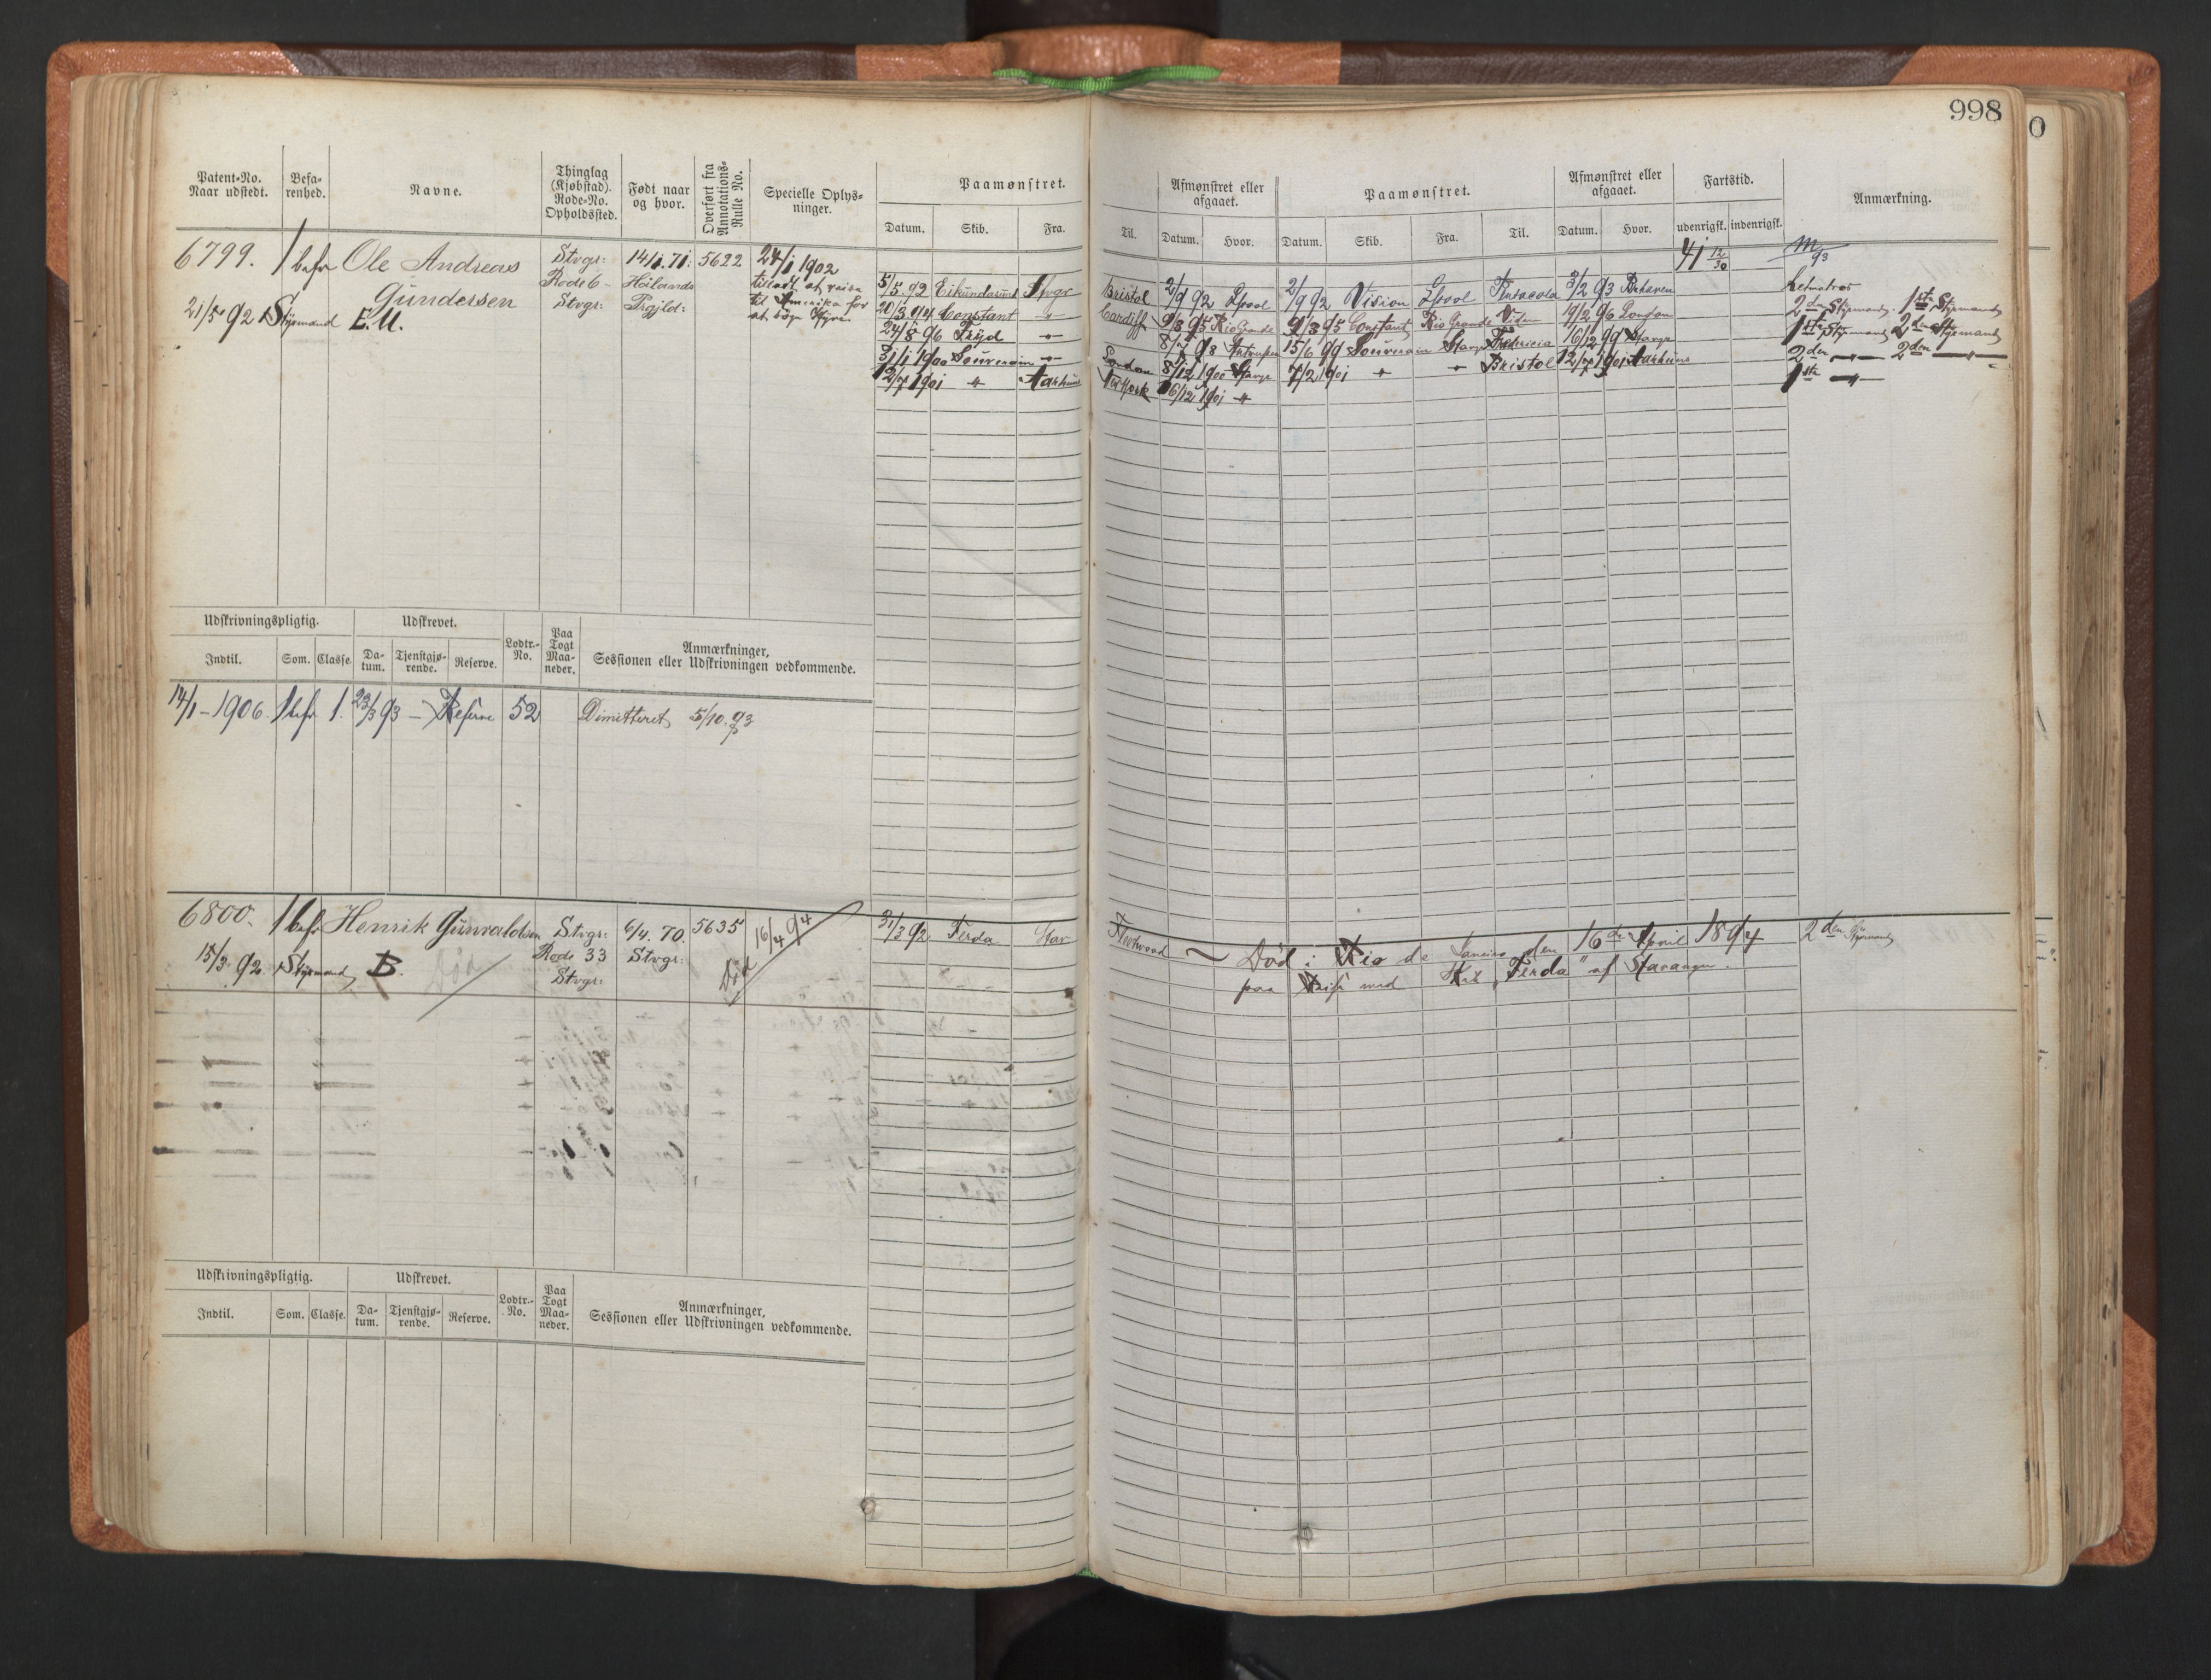 998
0
Patent-No. Naar udstedt.
Befa-renhed.
Navne.
Thinglag (Kjøbstad). Rode-No. Opholdssted.
Født naar og hvor.
Overført fra Annotations-Rulle No.
Specielle Oplys-ninger.
Paamønstret.
Datum. Skib. Fra.
Til.
Afmønstret eller afgaaet.
Datum. Hvor.
Paamønstret.
Datum. Skib. Fra. Til.
Afmønstret eller afgaaet.
Datum. Hvor.
Fartstid.
udenrigsk. indenrigsk.
Anmærkning.
6799. 1 befr Ole Andreas Stvgr: 14/1. 71. 5622 24/1 1902
Gundersen Rode 6 - Hölands tilladt at reise
21/5 92 Styrmand E.U. Stvgr: Prgjld: til Amerika for
at søge Hyre.
5/5 92 Eikundasund Stvgr Bristol 2/9 92 Lpool 2/9 92 Vision Lpool Pensacola 3/2 93 Brhaven
20/3 94 Constant " Cardiff 9/3 95 Rio Grande 9/3 95 Constant Rio Grande 19/2 96 London
24/8 96 Fryd " 98 Antwerpen 15/6 99 Souverain Stavgr Fredricia 16/12 99 Stavgr
31/1 1900 Souverain " London 8/12 1900 Stavgr 7/2 1901 " " Bristol 12/7 1901 Aarhuus
12/7 1901 " Aarhuus 16/12 1901 "
41 12/30
M/93
Letmatros
2den Styrmand, 1ste Styrmand
1ste Styrmand 2den Styrmand
2den " 2den "
1ste "
Udskrivningspligtig. Udskrevet.
Lodtr.-No.
Paa Togt Maa-neder.
Anmærkninger, Sessionen eller Udskrivningen vedkommende.
Indtil. Som. Classe. Da-tum. Tjenstgjø-rende. Reserve.
14/1 - 1906. 1 befr 1. 23/3 93 - Reserve 52 Dimitteret 5/10. 93
6800. 1 befr Henrik Gunvaldsen Stvgr: 6/4. 70. 5635 Død 16/4 94
15/3. 92. Styrmand B. Død Rode 33 Stvgr:
Stvgr:
31/3 92 Ferda Stav Fleetwood
Død i Rio de Janeiro den 16de April 1894
paa Reise med Skib "Ferda" af Stavanger.
2den Styrmand
Udskrivningspligtig. Udskrevet.
Lodtr.-No.
Paa Togt Maa-neder.
Anmærkninger, Sessionen eller Udskrivningen vedkommende.
Indtil. Som. Classe. Da-tum. Tjenstgjø-rende. Reserve.